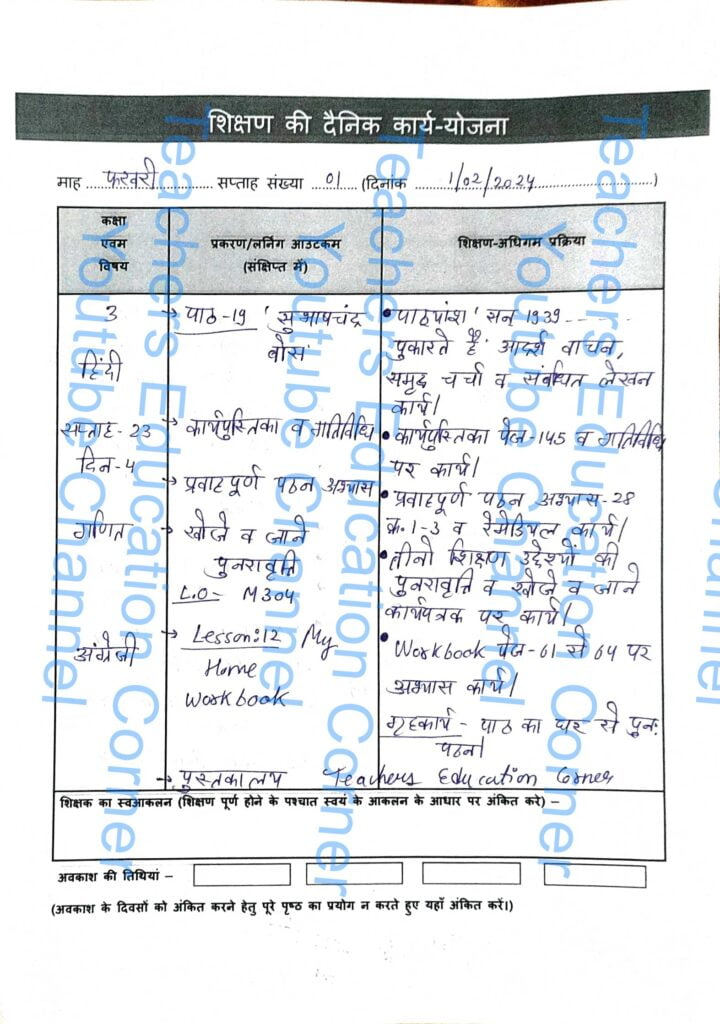 शिक्षण की दैनिक कार्य-योजना
माह फरवरी सप्ताह संख्या 01 (दिनांक 1/02/2024)
कक्षा
एवम
विषय
प्रकरण/लर्निंग आउटकम
(संक्षिप्त में)
शिक्षण-अधिगम प्रक्रिया
3
हिंदी
सप्ताह-23
दिन-4
गणित
अंग्रेजी
→ पाठ-19 'सुभाषचंद्र
बोस'
→ कार्यपुस्तिका व गतिविधि
→ प्रवाहपूर्ण पठन अभ्यास
→ खोजे व जाने
पुनरावृत्ति
L.O- M304
→ Lesson:12 My
Home
Workbook
→ पुस्तकालय
• पाठ्यांश 'सन् 1939------
पुकारते हैं' आदर्श वाचन,
समूह चर्चा व संबंधित लेखन
कार्य।
• कार्यपुस्तिका पेज-145 व गतिविधि
पर कार्य।
• प्रवाहपूर्ण पठन अभ्यास-28
क्र.1-3 व रेमेडियल कार्य।
• तीनो शिक्षण उद्देश्यों की
पुनरावृत्ति व खोजे व जाने
कार्यपत्रक पर कार्य।
• Workbook पेज-61 से 64 पर
अभ्यास कार्य।
गृहकार्य - पाठ का घर से पुनः
पठन।
Teachers Education Corner
शिक्षक का स्वआकलन (शिक्षण पूर्ण होने के पश्चात स्वयं के आकलन के आधार पर अंकित करे) –
अवकाश की तिथियां –
(अवकाश के दिवसों को अंकित करने हेतु पूरे पृष्ठ का प्रयोग न करते हुए यहाँ अंकित करें।)
Teachers Education Corner
Youtube Channel
Teachers Education Corner
Youtube Channel
Teachers Education Corner
Youtube Channel